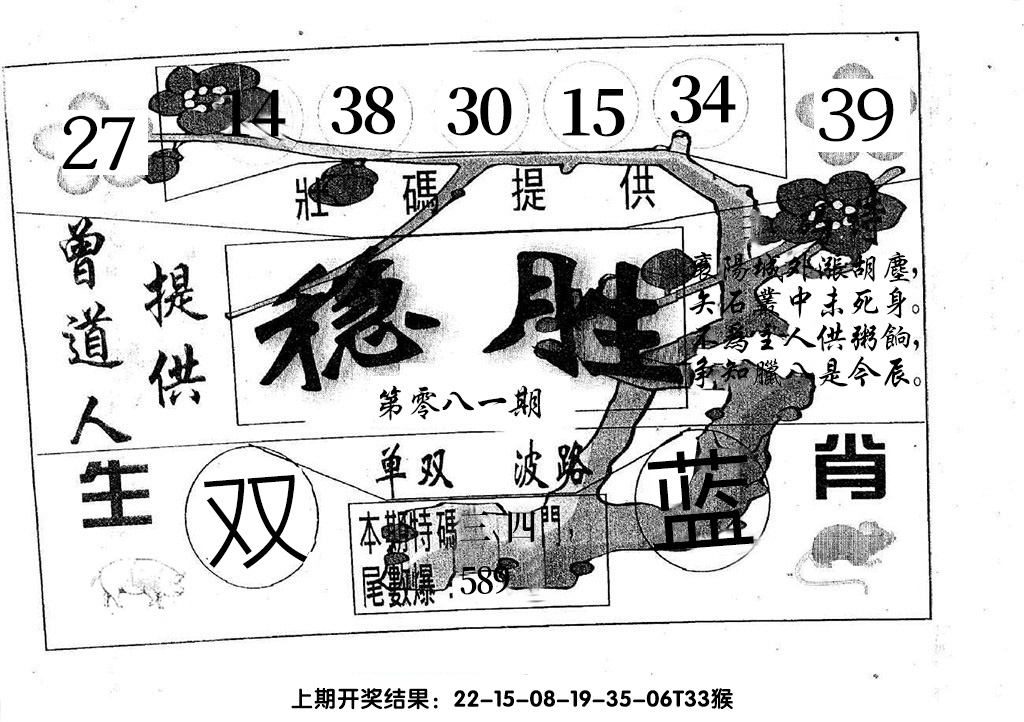 27 14 38 30 15 34 39
壯碼提供
曾道人
提供
稳胜
第零八一期
襄陽城外漲胡塵，
矢石叢中未死身。
不爲生人供粥餉，
争知臘八是今辰。
单双 波路
生肖
双
蓝
本期特碼三、四門，
尾數爆：589
上期开奖结果：22-15-08-19-35-06T33猴